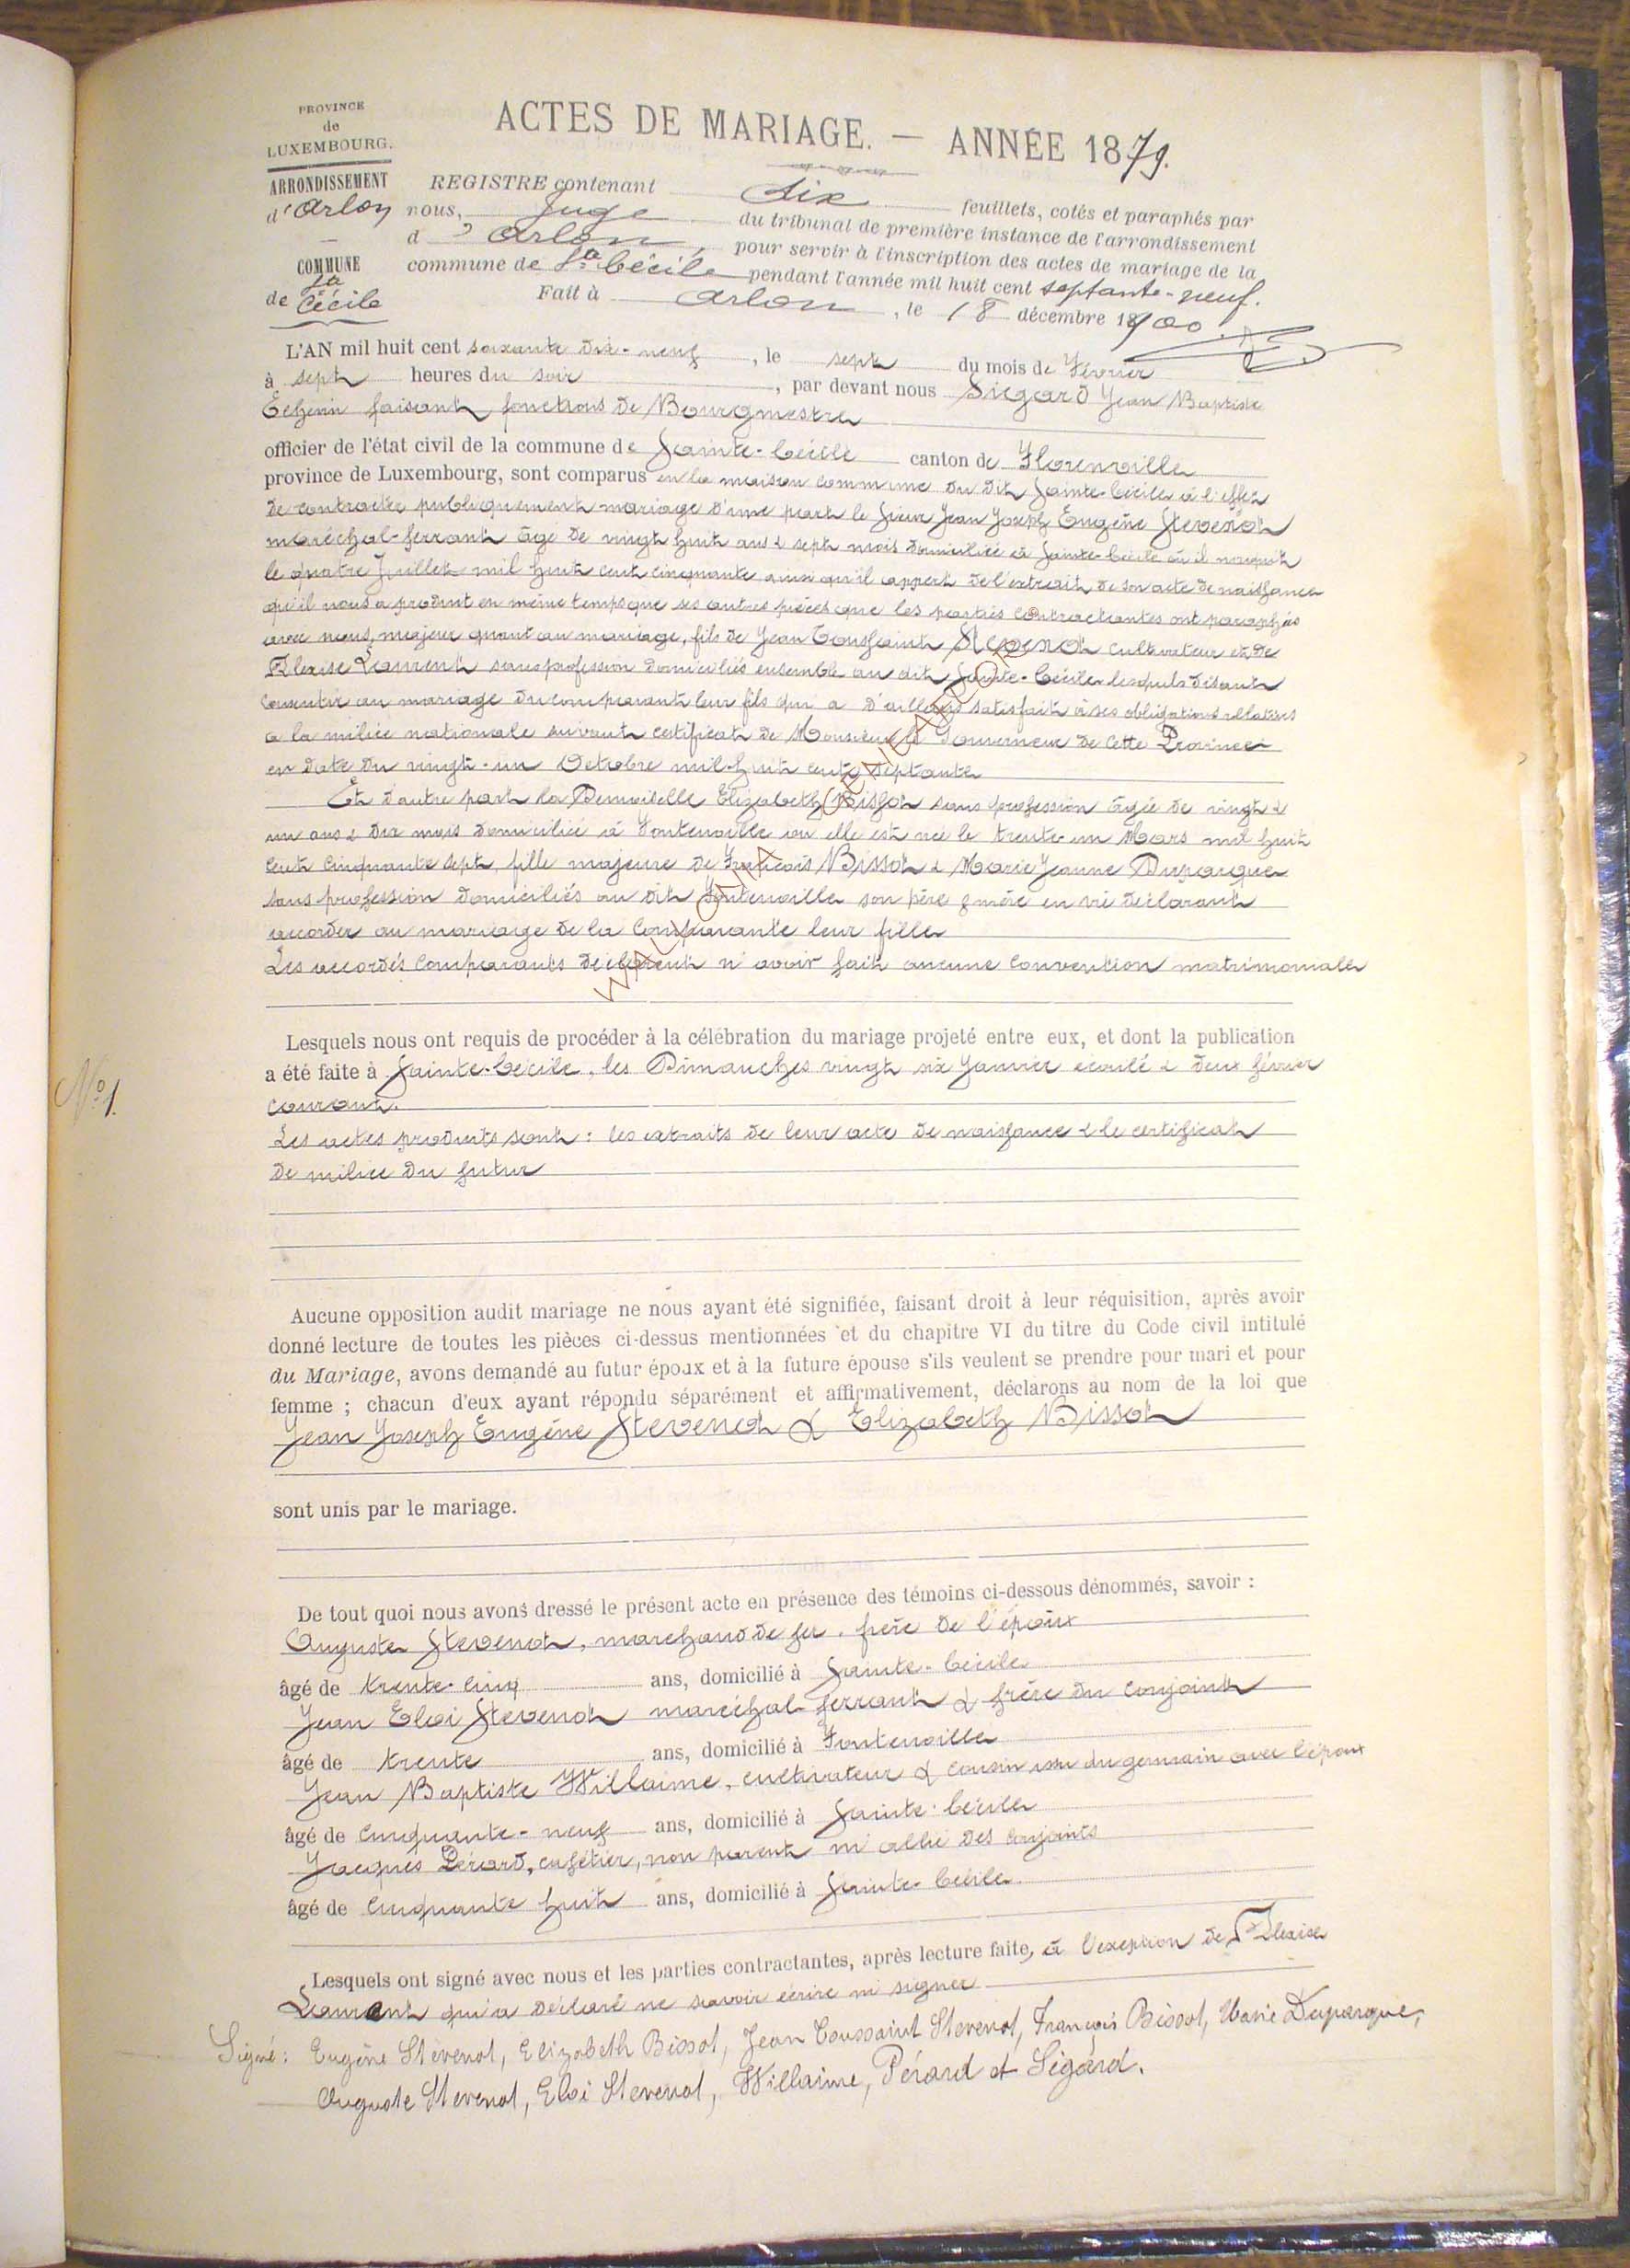 PROVINCE
de
LUXEMBOURG.
ARRONDISSEMENT
d'Arlon
COMMUNE
de Ste Cécile
ACTES DE MARIAGE. — ANNÉE 1879.
REGISTRE contenant dix feuillets, cotés et paraphés par
nous, Juge du tribunal de première instance de l'arrondissement
d'Arlon, pour servir à l'inscription des actes de mariage de la
commune de Ste Cécile pendant l'année mil huit cent septante-neuf.
Fait à Arlon, le 18 décembre 1900.
L'AN mil huit cent soixante dix-neuf, le sept du mois de Février
à sept heures du soir, par devant nous Siegard Jean Baptiste
Echevin faisant fonctions de Bourgmestre
officier de l'état civil de la commune de Sainte-Cécile canton de Florenville
province de Luxembourg, sont comparus en la maison commune du dit Sainte-Cécile à l'effet
de contracter publiquement mariage d'une part le sieur Jean Joseph Eugène Stevenot
maréchal-ferrant âgé de vingt huit ans & sept mois domicilié à Sainte-Cécile où il naquit
le quatre Juillet mil huit cent cinquante ainsi qu'il appert de l'extrait de son acte de naissance
qu'il nous a produit en même temps que ses autres pièces que les parties contractantes ont paraphés
avec nous, majeur quant au mariage, fils de Jean Toussaint Stevenot cultivateur et de
Flexise Laurent sans profession domiciliés ensemble au dit Sainte-Cécile lesquels disant
consentir au mariage du comparant leur fils qui a d'ailleurs satisfait à ses obligations relatives
a la milice nationale suivant certificat de Monsieur le Gouverneur de cette Province
en date du vingt-un Octobre mil-huit cent septante
Et d'autre part la Demoiselle Elizabeth Bissot sans profession âgée de vingt &
un ans & dix mois domiciliée à Fontenoille où elle est née le trente-un Mars mil huit
cent cinquante sept, fille majeure de François Bissot & Marie Jeanne Duparque
sans profession domiciliés au dit Fontenoille son père & mère en vie déclarant
accorder au mariage de la Comparante leur fille
Les accordés Comparants déclarent n'avoir fait aucune convention matrimoniale
Lesquels nous ont requis de procéder à la célébration du mariage projeté entre eux, et dont la publication
a été faite à Sainte-Cécile, les Dimanches vingt six Janvier écoulé & deux février
courant.
N° 1.
Les actes produits sont : les extraits de leur acte de naissance & le certificat
de milice du futur
Aucune opposition audit mariage ne nous ayant été signifiée, faisant droit à leur réquisition, après avoir
donné lecture de toutes les pièces ci-dessus mentionnées et du chapitre VI du titre du Code civil intitulé
du Mariage, avons demandé au futur époux et à la future épouse s'ils veulent se prendre pour mari et pour
femme ; chacun d'eux ayant répondu séparément et affirmativement, déclarons au nom de la loi que
Jean Joseph Eugène Stevenot & Elizabeth Bissot
sont unis par le mariage.
De tout quoi nous avons dressé le présent acte en présence des témoins ci-dessous dénommés, savoir :
Auguste Stevenot, marchand de fer, frère de l'époux
âgé de trente-cinq ans, domicilié à Sainte-Cécile
Jean Eloi Stevenot maréchal-ferrant & frère du conjoint
âgé de trente ans, domicilié à Fontenoille
Jean Baptiste Willaime, cultivateur & cousin issu du germain avec l'époux
âgé de cinquante-neuf ans, domicilié à Sainte-Cécile
Jacques Pérard, cafétier, non parent ni allié des conjoints
âgé de cinquante huit ans, domicilié à Sainte-Cécile
Lesquels ont signé avec nous et les parties contractantes, après lecture faite, à l'exeption de Flexise
Laurent qui a déclaré ne savoir écrire ni signer
Signé : Eugène Stevenot, Elizabeth Bissot, Jean Toussaint Stevenot, François Bissot, Marie Duparque,
Auguste Stevenot, Eloi Stevenot, Willaime, Pérard et Sigard.